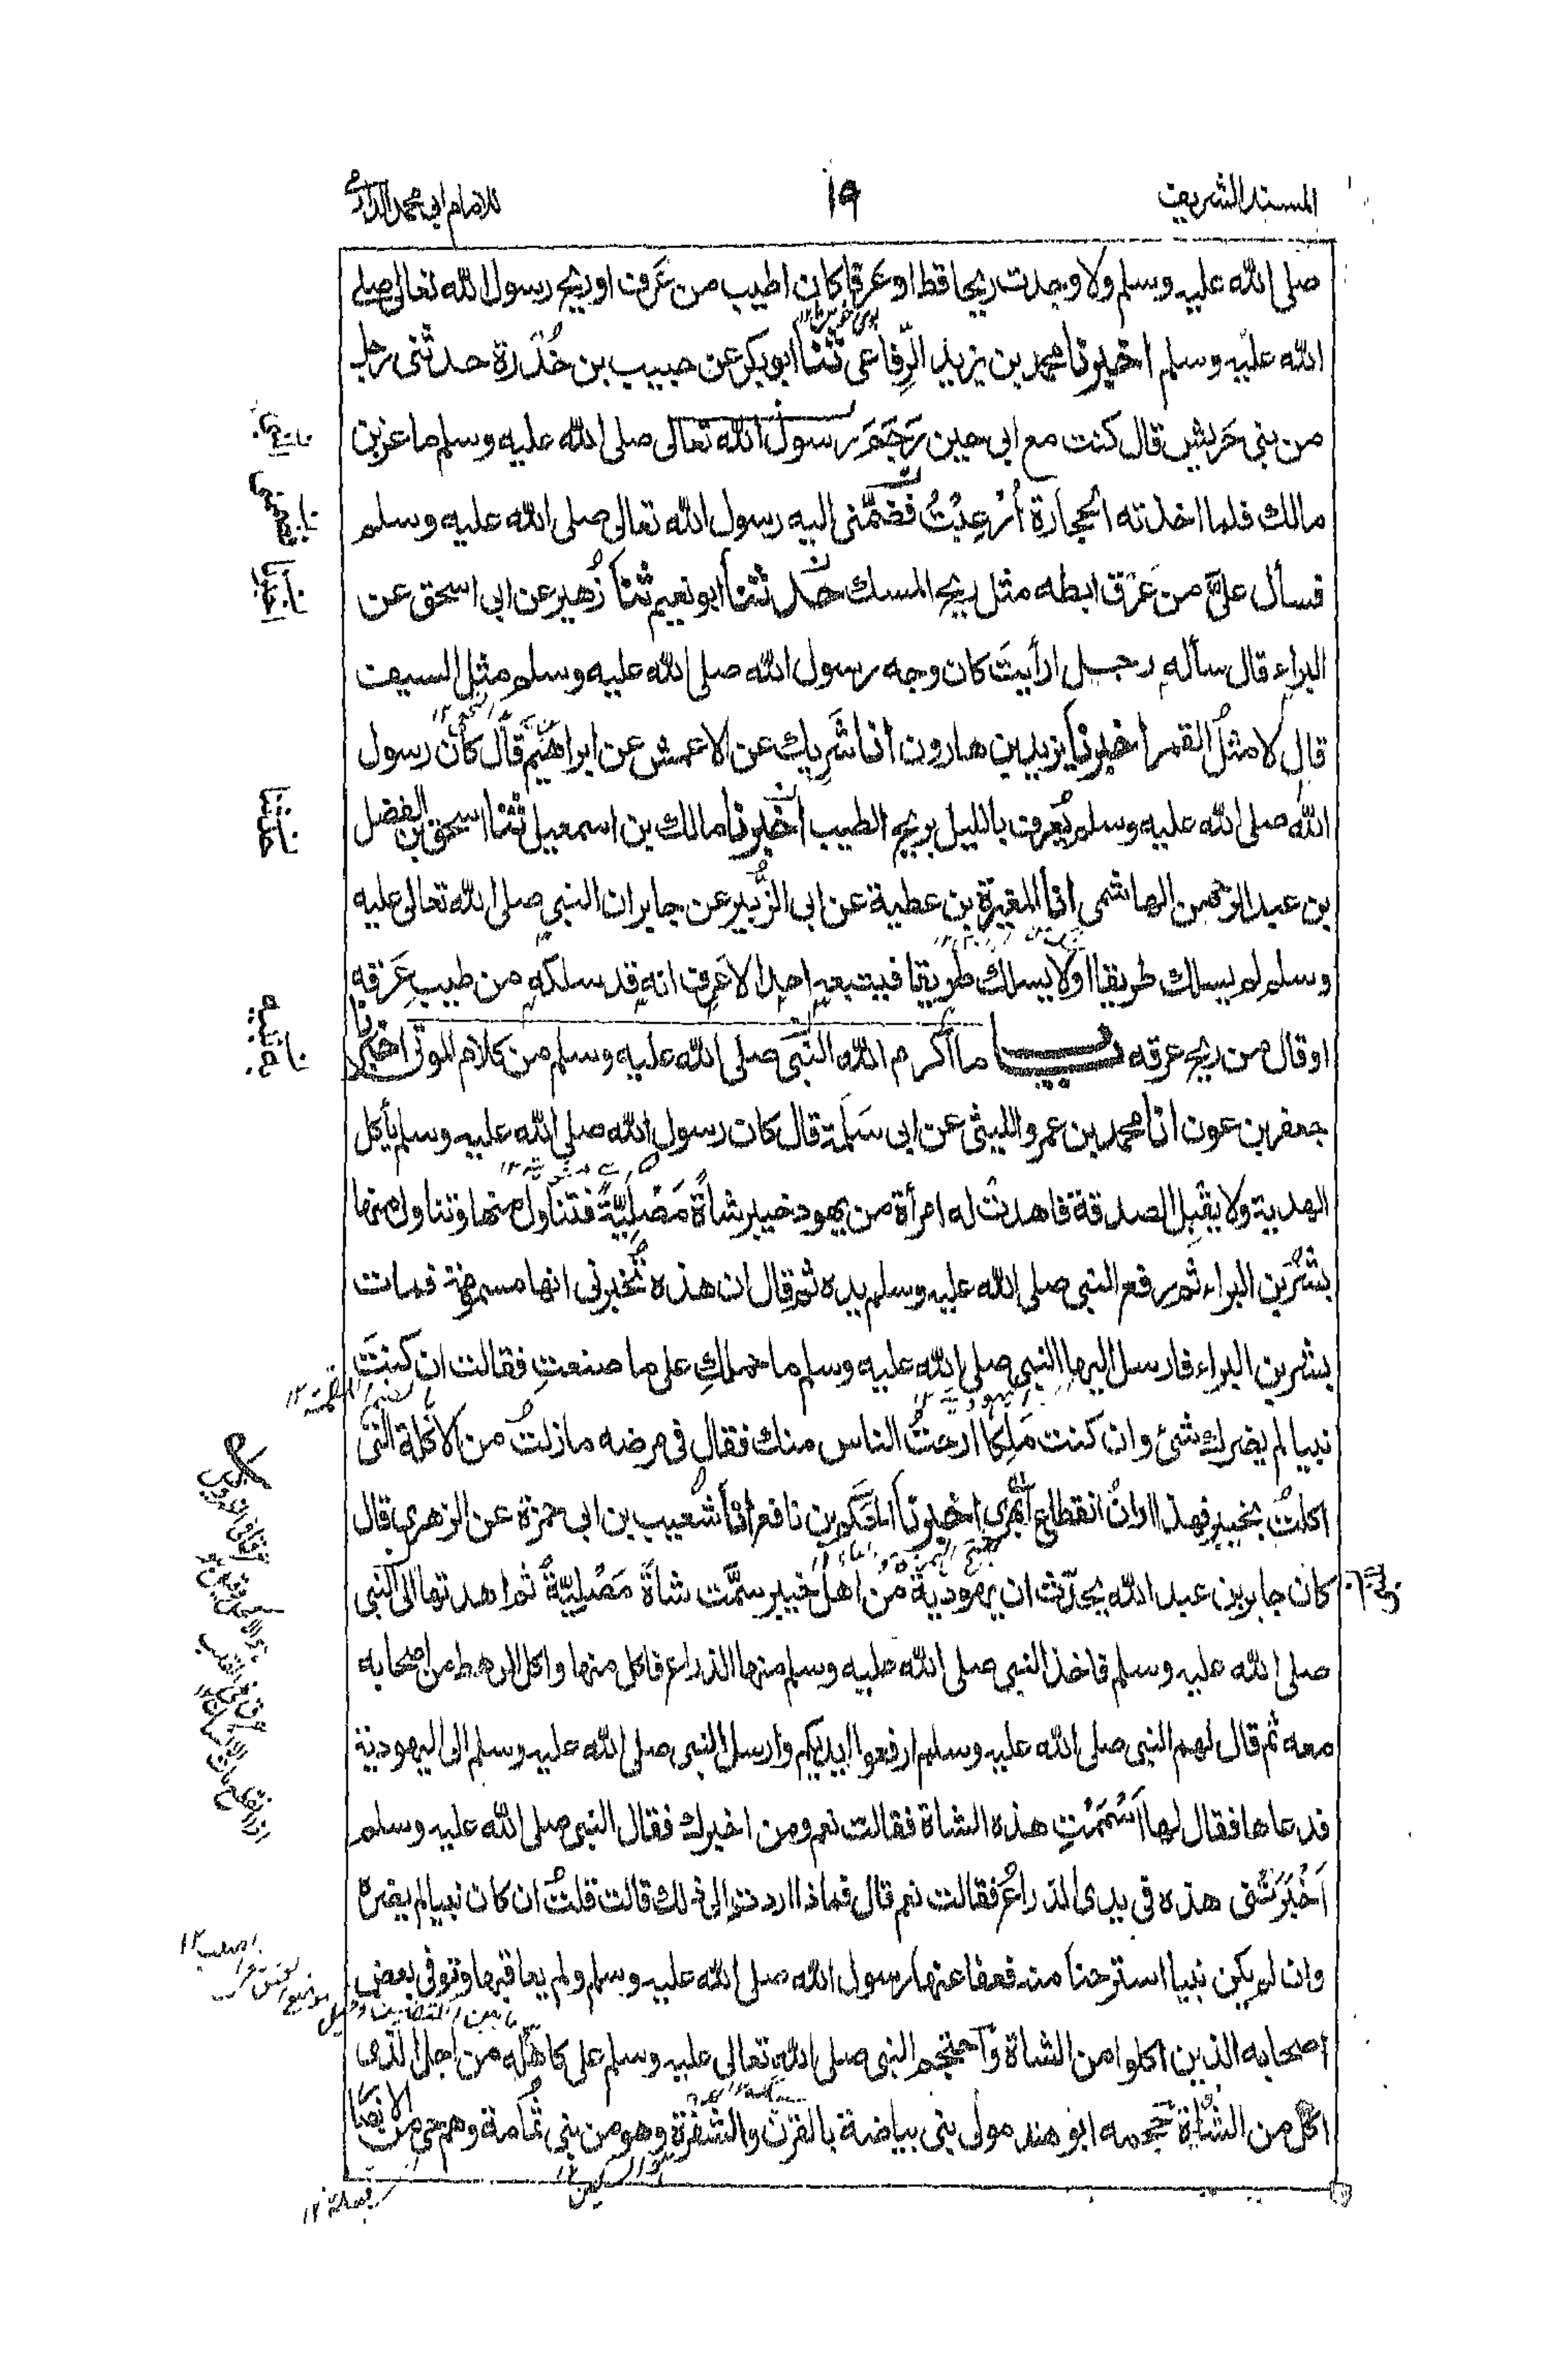 المسند الشريف
١٩
للامام ابي محمد الدارمي
صلى الله عليه وسلم ولا وجدت ريحا قط او عَرقا كان اطيب من عَرف او ريح رسول الله تعالى صلى
الله عليه وسلم اخبرنا محمد بن يزيد الرِّفاعي ثنا ابو بكر عن حبيب بن خُدرة حدثني رجل
من بني حَريش قال كنت مع ابي حين رَجَمَ رسول الله تعالى صلى الله عليه وسلم ماعز بن
مالك فلما اخذته الحجارة اُرْعِبْتُ فضمّني اليه رسول الله تعالى صلى الله عليه وسلم
فسأل عليَّ من عَرَق ابطه مثل ريح المسك حدثنا ابو نعيم ثنا زُهير عن ابي اسحق عن
البراء قال سأله رجل ارأيتَ كان وجه رسول الله صلى الله عليه وسلم مثل السيف
قال لا مثلُ القمر اخبرنا يزيد بن هارون انا شَرِيك عن الاعمش عن ابراهيم قال كان رسول
الله صلى الله عليه وسلم يُعرف بالليل بريح الطيب اخبرنا مالك بن اسمعيل ثنا اسحق بن الفضل
بن عبد الرحمن الهاشمي انا المغيرة بن عطية عن ابي الزُّبير عن جابر ان النبي صلى الله تعالى عليه
وسلم لم يسلك طريقا اولا يسلك طريقا فيتبعه احدا لا عَرف انه قد سلكه من طيب عَرَقه
او قال من ريح عرقه باب ما اكرم الله النبي صلى الله عليه وسلم من كلام الموتى اخبرنا
جعفر بن عون انا محمد بن عمرو الليثي عن ابي سَلَمة قال كان رسول الله صلى الله عليه وسلم يأكل
الهدية ولا يقبل الصدقة فاهدت له امرأة من يهود خيبر شاةً مَصْلِيّةً فتناول منها وتناول منها
بشر بن البراء ثم رفع النبي صلى الله عليه وسلم يده ثم قال ان هذه تُخبرني انها مسمومة فمات
بشر بن البراء فارسل اليها النبي صلى الله عليه وسلم ما حملكِ على ما صنعتِ فقالت ان كنتَ
نبيا لم يضرك شئ وان كنت مَلِكا ارحتُ الناس منك فقال في مرضه مازلتُ من الاكلة التي
اكلتُ بخيبر فهذا اوانُ انقطاع ابهري اخبرنا الحكم بن نافع انا شعيب بن ابي حمزة عن الزهري قال
كان جابر بن عبد الله يحدّث ان يهودية من اهل خيبر سمَّت شاةً مَصْلِيّةً ثم اهدتها الى النبي
صلى الله عليه وسلم فاخذ النبي صلى الله عليه وسلم منها الذراع فاكل منها واكل الرهط من اصحابه
معه ثم قال لهم النبي صلى الله عليه وسلم ارفعوا ايديكم وارسل النبي صلى الله عليه وسلم الى اليهودية
فدعاها فقال لها اَسَمَمْتِ هذه الشاة فقالت نعم ومن اخبرك فقال النبي صلى الله عليه وسلم
اَخْبَرَتْني هذه في يدي الذراعُ فقالت نعم قال فماذا اردت الى ذلك قالت قلتُ ان كان نبيا لم يضره
وان لم يكن نبيا استرحنا منه فعفا عنها رسول الله صلى الله عليه وسلم ولم يعاقبها وتوفي بعض
اصحابه الذين اكلوا من الشاة واحتجم النبي صلى الله تعالى عليه وسلم على كاهله من اجل الذي
اكل من الشاة حجمه ابو هند مولى بني بياضة بالقرن والشفرة وهو من بني ثُمامة وهم حي من الانصار